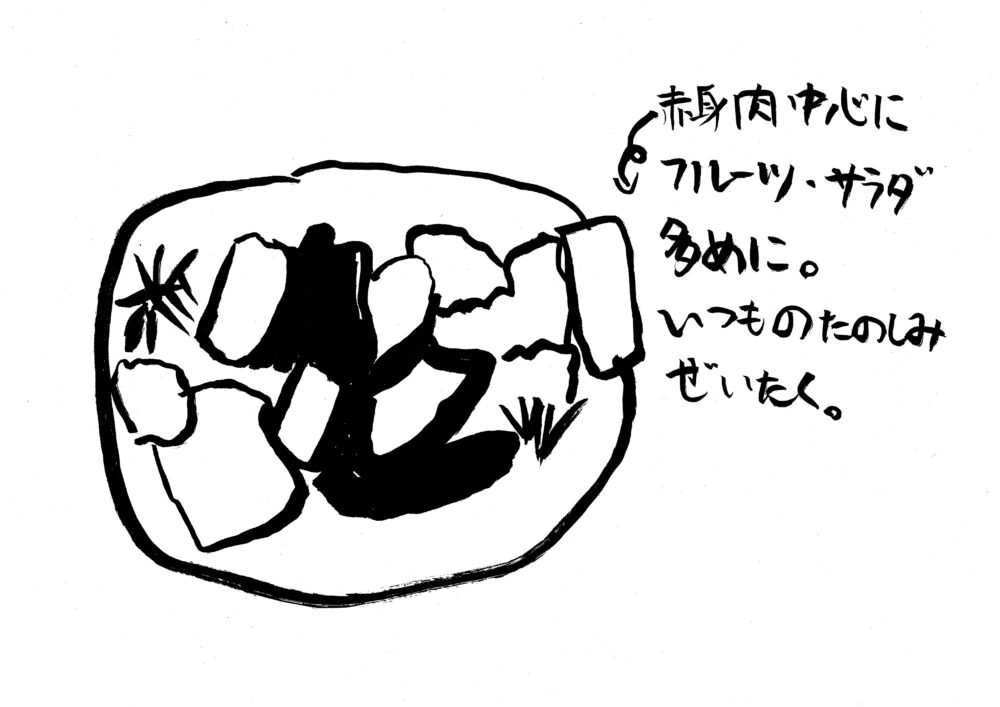 赤身肉中心に
フルーツ・サラダ
多めに。
いつものたのしみ
ぜいたく。